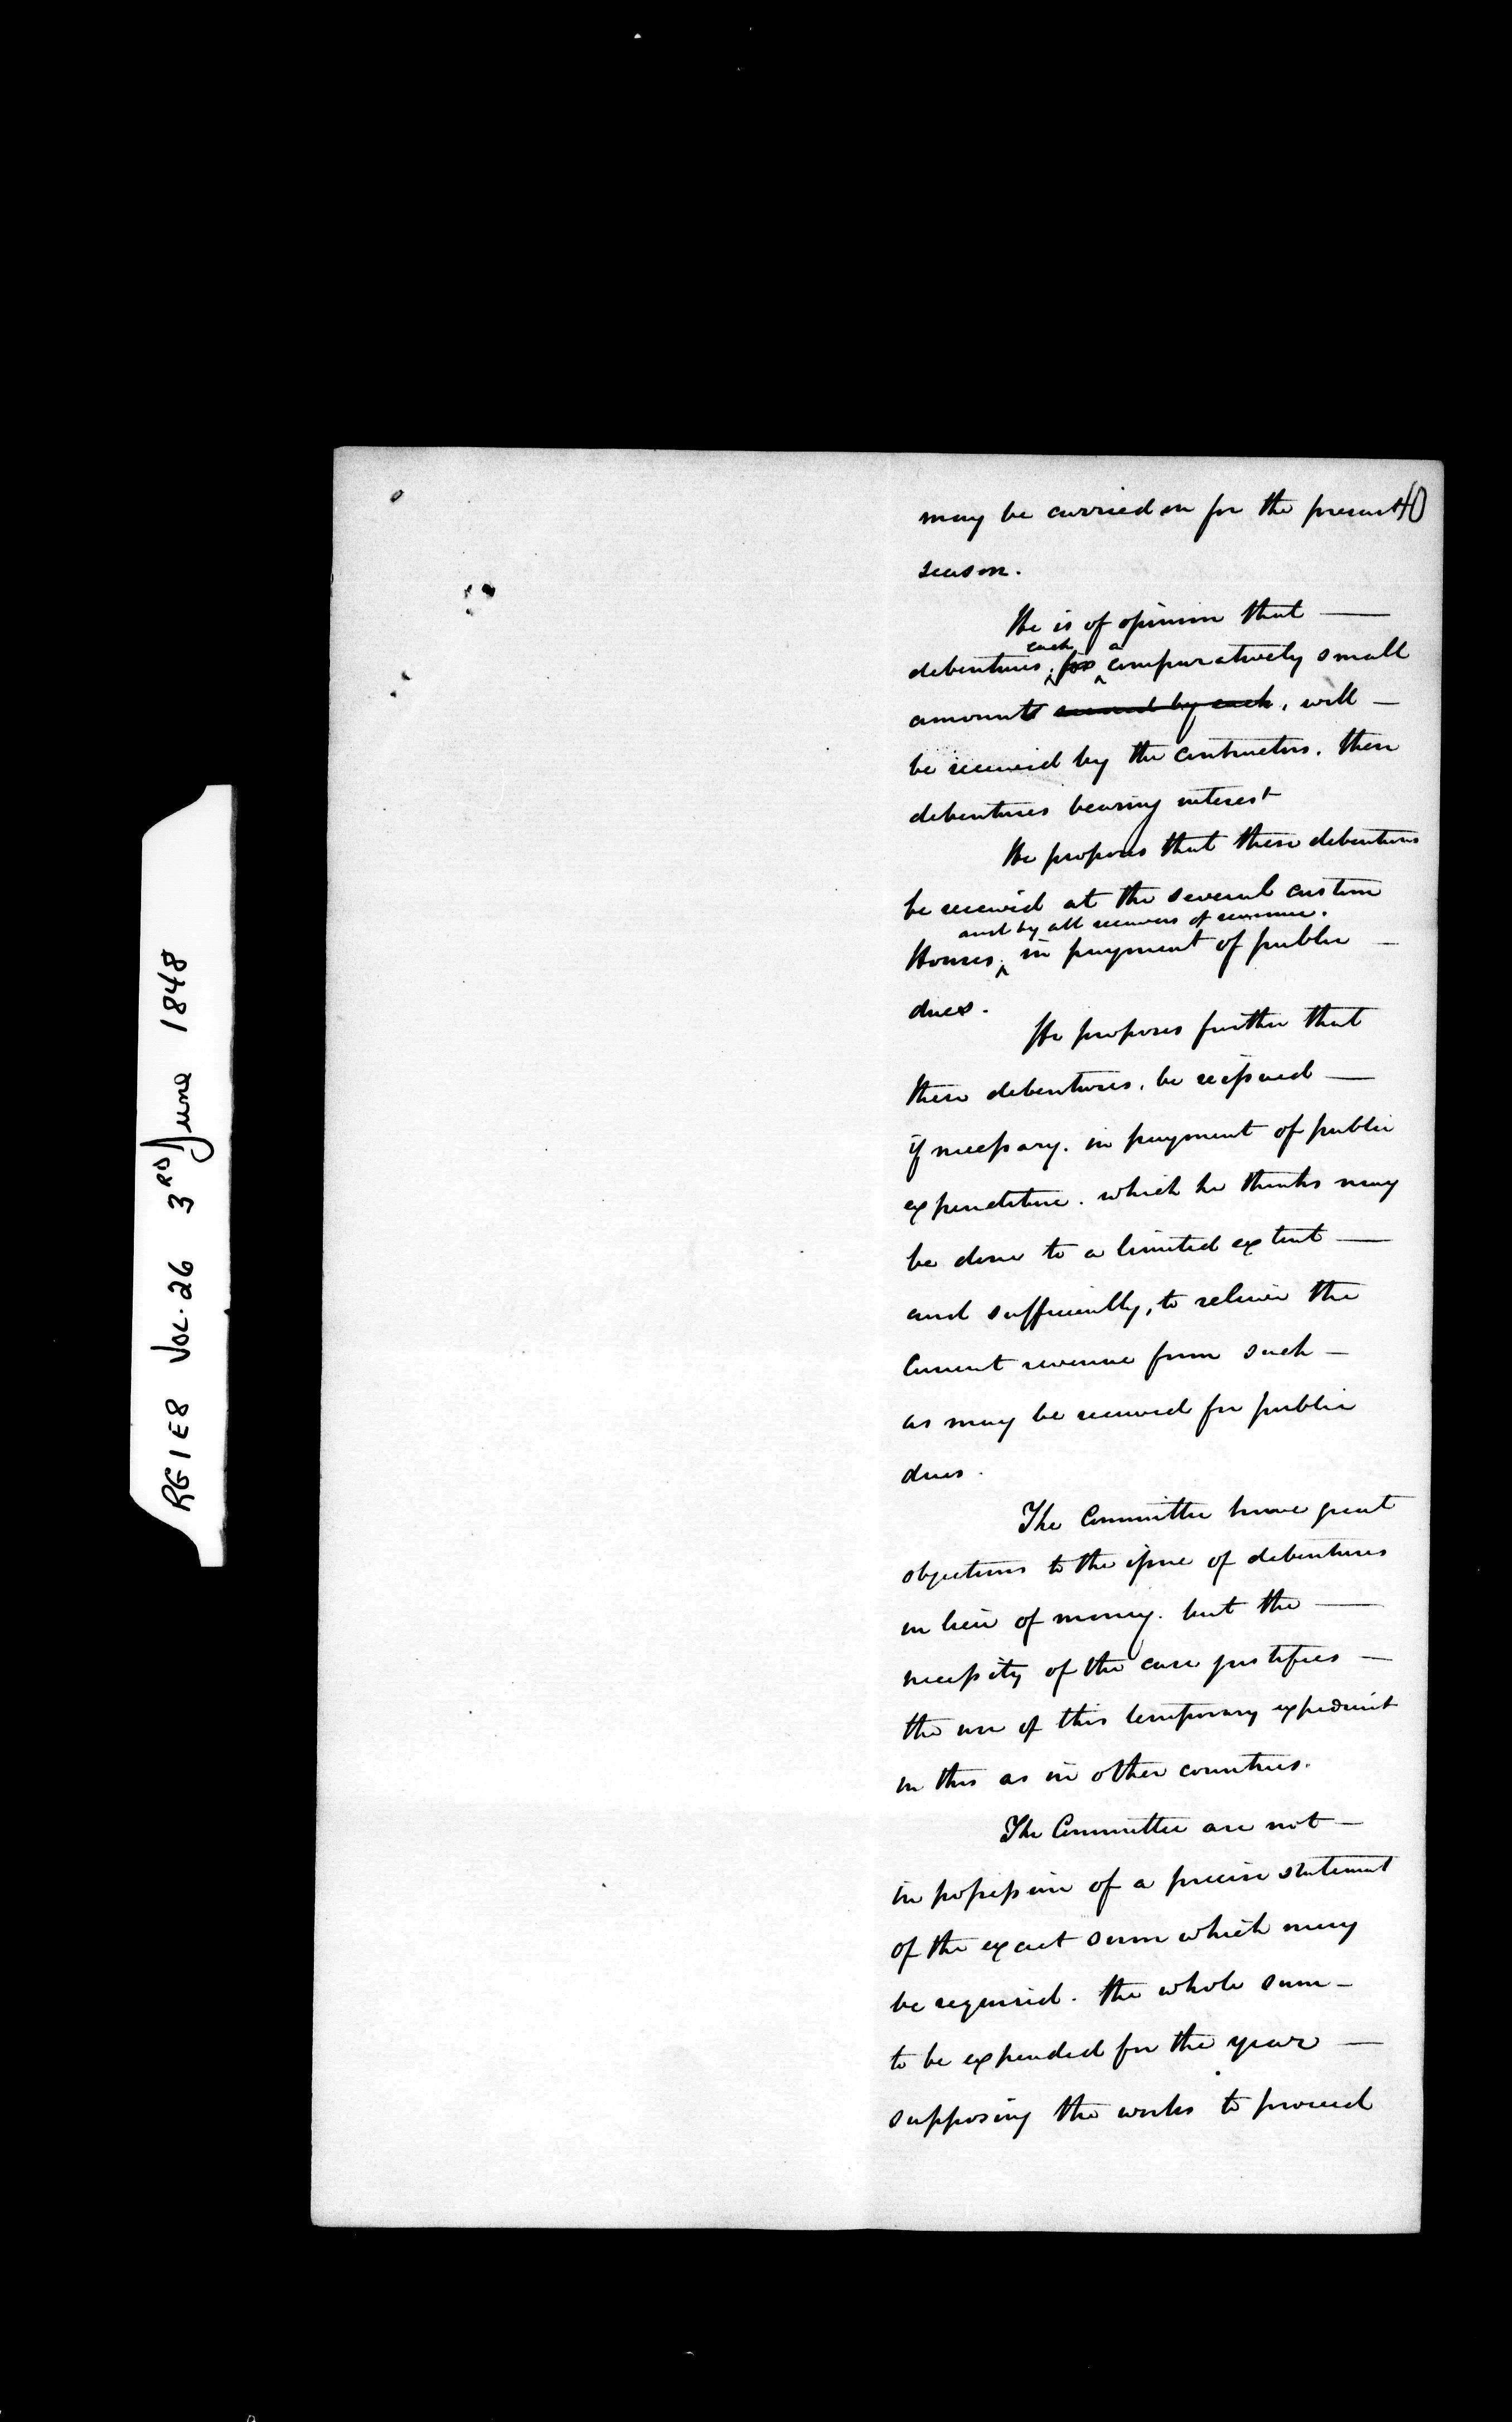 RG 1 E8 VOL. 26 3RD June 1848
40
may be carried on for the present
season.
He is of opinion that —
each a
debentures, for comparatively small
amounts by each, will —
be received by the contractors. these
debentures bearing interest
He proposes that these debentures
be received at the several custom
and by all receivers of revenue.
Houses, in payment of public —
dues.
He proposes further that
these debentures, be reissued —
if necessary. in payment of public
expenditure. which he thinks may
be done to a limited extent —
and sufficiently, to relieve the
Current revenue from such —
as may be received for public
dues.
The Committee have great
objections to the issue of debentures
in lieu of money. but the —
necessity of the case justifies —
the use of this temporary expedient
in this as in other countries.
The Committee are not —
in possession of a precise statement
of the exact sum which may
be required. the whole sum —
to be expended for the year —
supposing the works to proceed